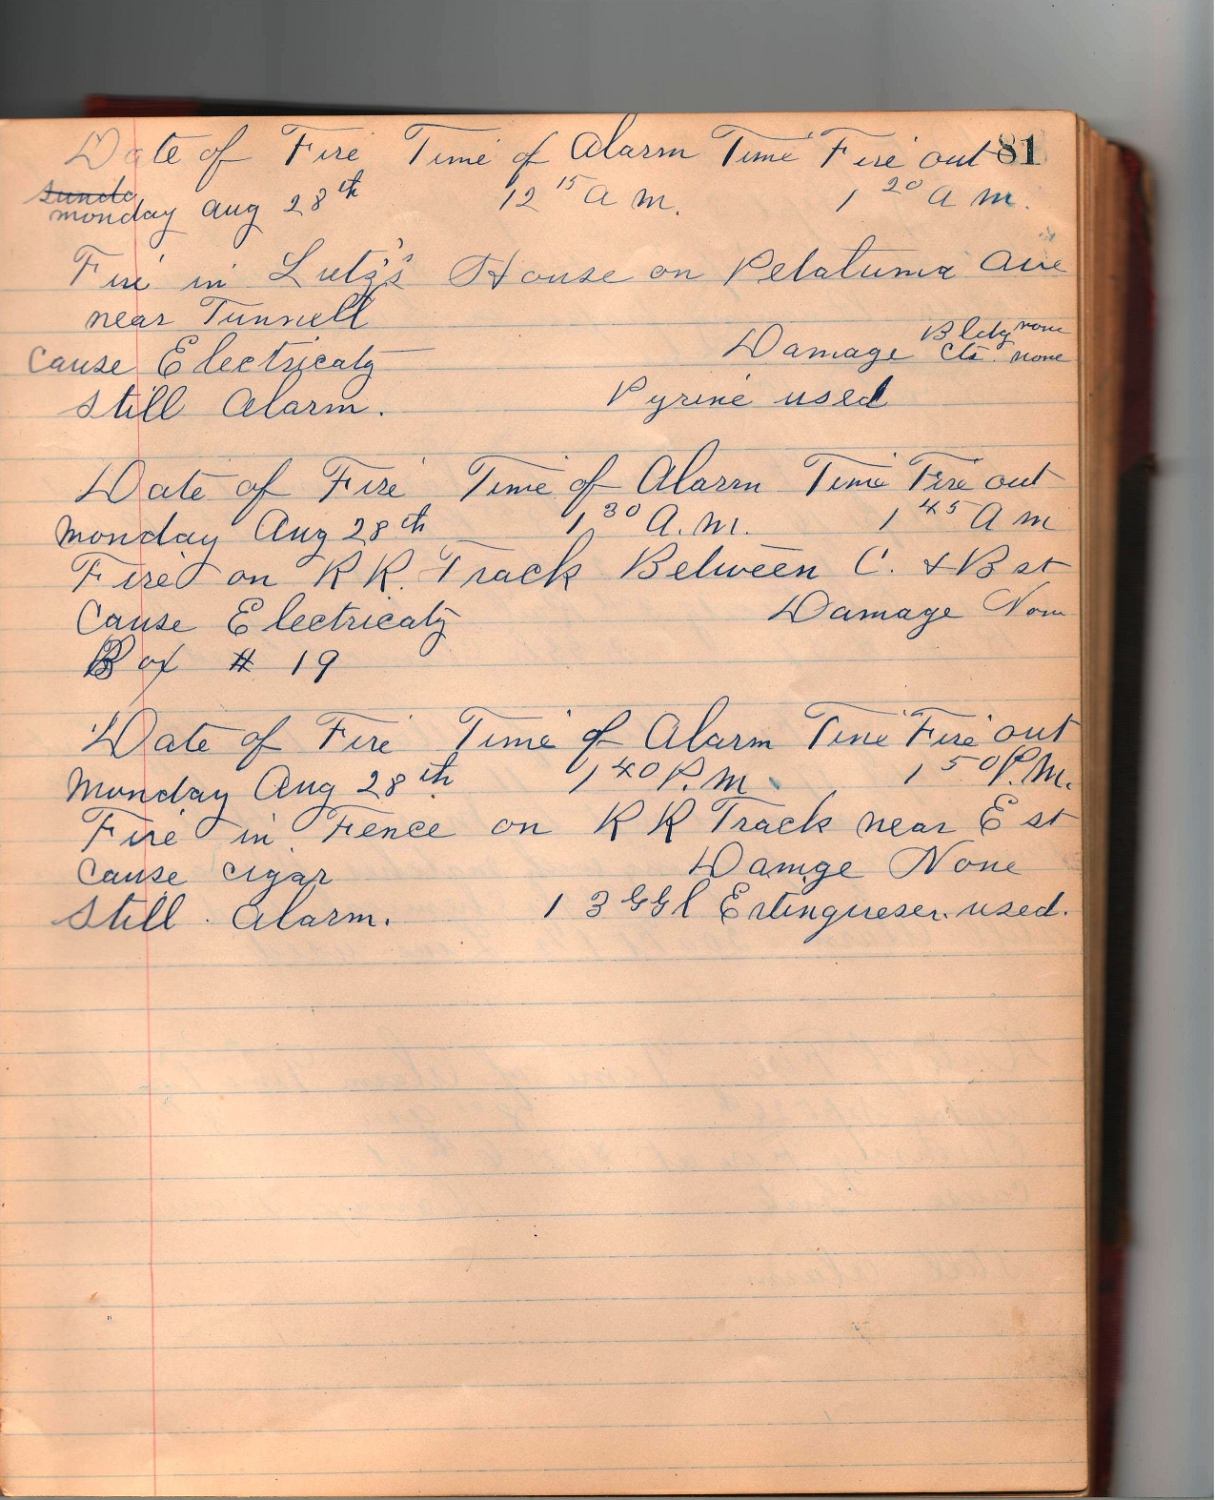 Date of Fire Time of Alarm Time Fire out 81
Sunda
Monday Aug 28th 12 15 A M. 1 20 A M.
Fire in Lutz's House on Petaluma Ave
near Tunnell
Cause Electricaty Damage Bldg none
Cts. none
Still Alarm. Pyrene used
Date of Fire Time of Alarm Time Fire out
Monday Aug 28th 1 30 A.M. 1 45 A M
Fire on R R. Track Between C. & B st
Cause Electricaty Damage None
Box # 19
Date of Fire Time of Alarm Time Fire out
Monday Aug 28th 1 40 P.M. 1 50 P.M.
Fire in Fence on R R Track near E st
Cause cigar Damge None
Still Alarm. 1 3 GGl used.